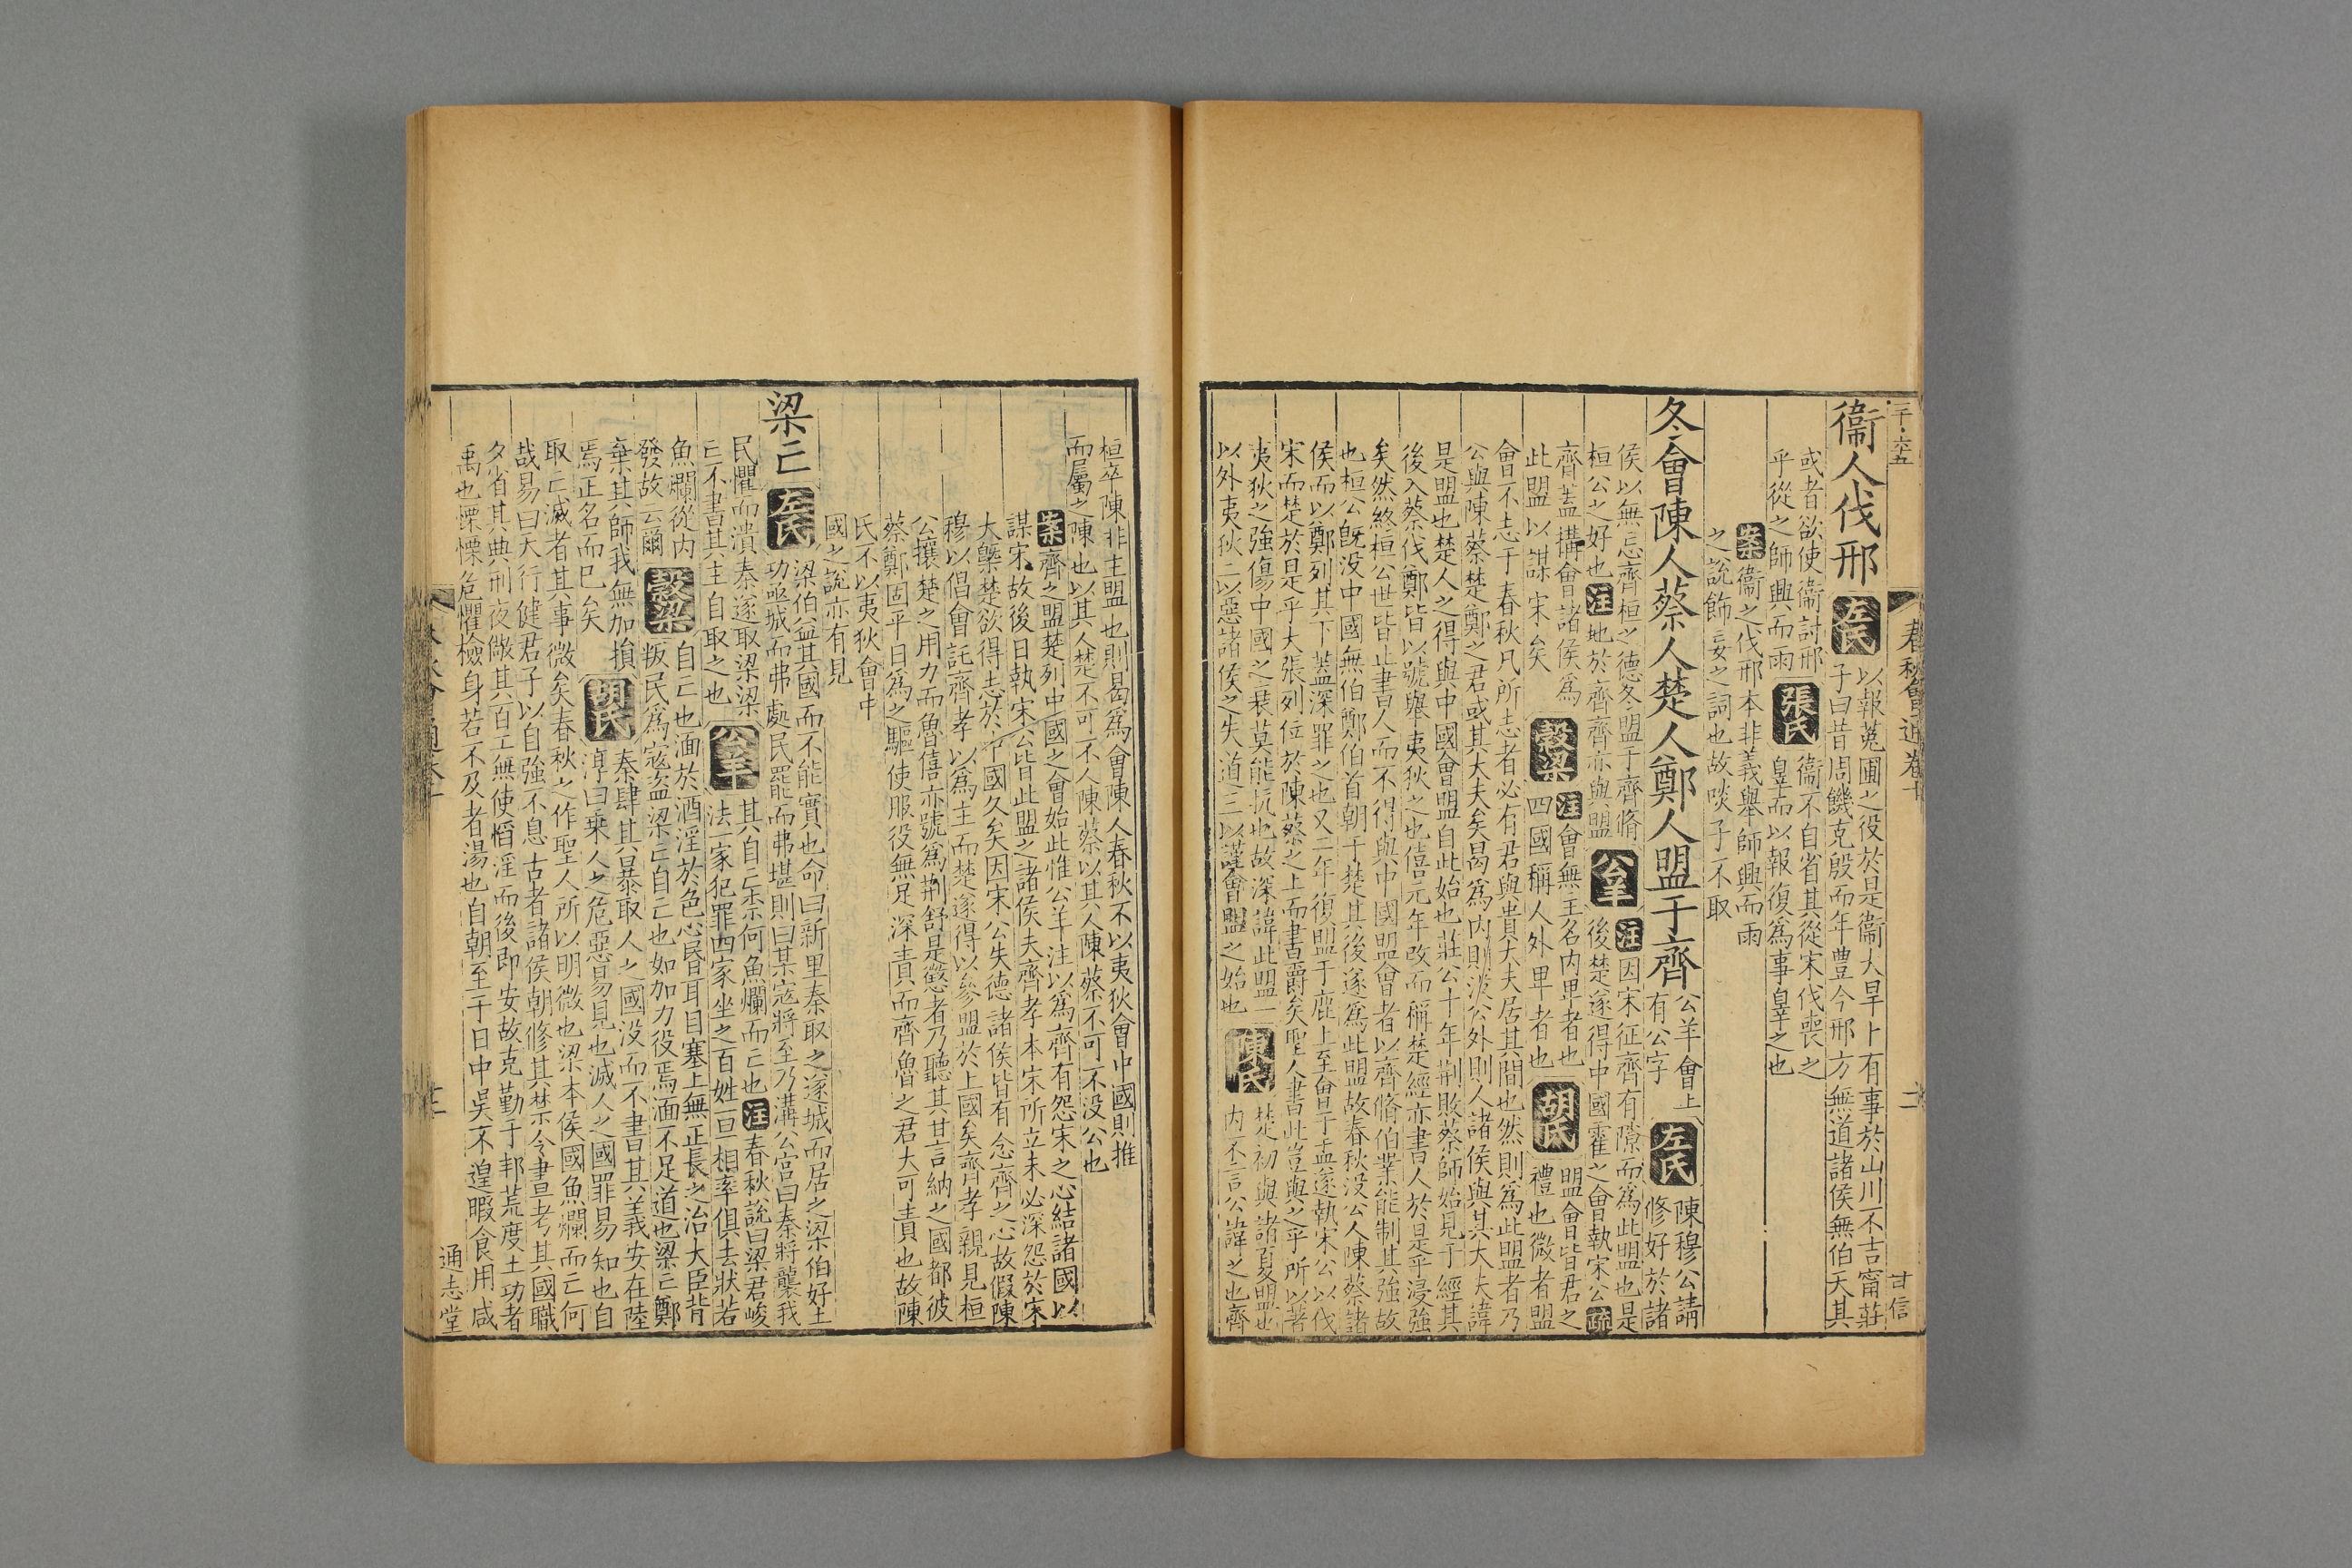 衞人伐邢 左氏 以報菟圃之役於是衞大旱卜有事於山川不吉甯莊
子曰昔周饑克殷而年豊今邢方無道諸侯無伯天其
或者欲使衞討邢乎從之師興而雨 張氏 衞不自省其從宋伐喪之
辠而以報復爲事辠之也
案 衞之伐邢本非義舉師興而雨
之說飾妄之詞也故啖子不取
冬會陳人蔡人楚人鄭人盟于齊 公羊會上有公字 左氏 陳穆公請
修好於諸
侯以無忘齊桓之德冬盟于齊脩
桓公之好也 注 地於齊齊亦與盟 公羊 注 因宋征齊有隙而爲此盟也是
後楚遂得中國霍之會執宋公 疏
齊盖搆會諸侯爲
此盟以謀宋矣 穀梁 注 會無主名内卑者也
四國稱人外卑者也 胡氏 盟會皆君之
禮也微者盟
會不志于春秋凡所志者必有君與貴大夫居其間也然則爲此盟者乃
公與陳蔡楚鄭之君或其大夫矣曷爲内則没公外則人諸侯與其大夫諱
是盟也楚人之得與中國會盟自此始也莊公十年荆敗蔡師始見于經其
後入蔡伐鄭皆以號舉夷狄之也僖元年改而稱楚經亦書人於是乎浸強
矣然終桓公世皆止書人而不得與中國盟會者以齊脩伯業能制其強故
也桓公旣没中國無伯鄭伯首朝于楚其後遂爲此盟故春秋没公人陳蔡諸
侯而以鄭列其下蓋深罪之也又二年復盟于鹿上至會于盂遂執宋公以伐
宋而楚於是乎大張列位於陳蔡之上而書爵矣聖人書此豈與之乎所以著
夷狄之強傷中國之衰莫能抗也故深諱此盟一
以外夷狄二以惡諸侯之失道三以謹會盟之始也 陳氏 楚初與諸夏盟也
内不言公諱之也齊
桓卒陳非主盟也則曷爲會陳人春秋不以夷狄會中國則推
而屬之陳也以其人楚不可不人陳蔡以其人陳蔡不可不没公也
案 齊之盟楚列中國之會始此惟公羊注以爲齊有怨宋之心結諸國以
謀宋故後日執宋公皆此盟之諸侯夫齊孝本宋所立未必深怨於宋
大槩楚欲得志於中國久矣因宋公失德諸侯皆有念齊之心故假陳
穆以倡會託齊孝以爲主而楚遂得以參盟於上國矣齊孝親見桓
公攘楚之用力而魯僖亦號爲荆舒是懲者乃聽其甘言納之國都彼
蔡鄭固平日爲之驅使服役無足深責而齊魯之君大可責也故陳
氏不以夷狄會中
國之說亦有見
梁亡 左氏 梁伯益其國而不能實也命曰新里秦取之遂城而居之梁伯好土
功亟城而弗處民罷而弗堪則曰某寇將至乃溝公宮曰秦將襲我
民懼而潰秦遂取梁梁
亡不書其主自取之也 公羊 其自亡柰何魚爛而亡也 注 春秋說曰梁君峻
法一家犯罪四家坐之百姓一旦相率俱去狀若
魚爛從内
發故云爾 穀梁 自亡也湎於酒淫於色心昏耳目塞上無正長之治大臣背
叛民爲寇盗梁亡自亡也如加力役焉湎不足道也梁亡鄭
棄其師我無加損
焉正名而已矣 胡氏 秦肆其暴取人之國没而不書其義安在陸
淳曰乘人之危惡易見也滅人之國罪易知也自
取亡滅者其事微矣春秋之作聖人所以明微也梁本侯國魚爛而亡何
哉易曰天行健君子以自強不息古者諸侯朝修其禁令晝考其國職
夕省其典刑夜儆其百工無使慆淫而後即安故克勤于邦荒度土功者
禹也慄慄危懼檢身若不及者湯也自朝至于日中昃不遑暇食用咸
通志堂
春秋會通卷十
甘信